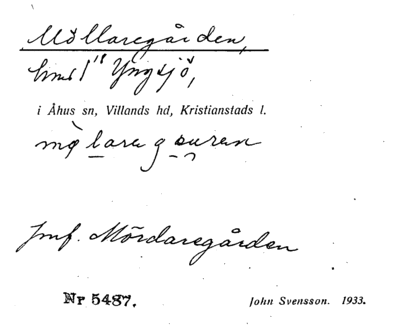 Möllaregården,
hmd 1¹⁸ Yngsjö,
i Åhus sn, Villands hd, Kristianstads l.
Jmf. Mördaregården
Nr 5487.
John Svensson. 1933.